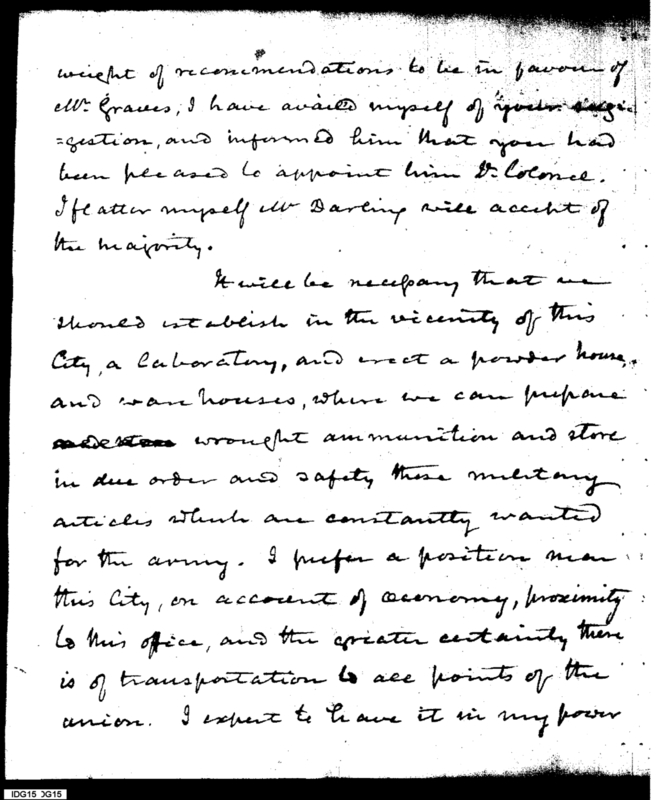 weight of recommendations to be in favour of
Mr. Graves, I have availed myself of your sugg-
=gestion, and informed him that you had
been pleased to appoint him Lt. Colonel.
I flatter myself Mr Darling will accept of
the majority.
It will be necessary that we
should establish in the vicinity of this
City, a Laboratory, and erect a powder house,
and ware houses, where we can prepare
wrought ammunition and store
in due order and safety those military
articles which are constantly wanted
for the army. I prefer a position near
this City, on account of Oeconomy, proximity
to this office, and the greater certainty there
is of transportation to all points of the
union. I expect to have it in my power
IDG15 )G15